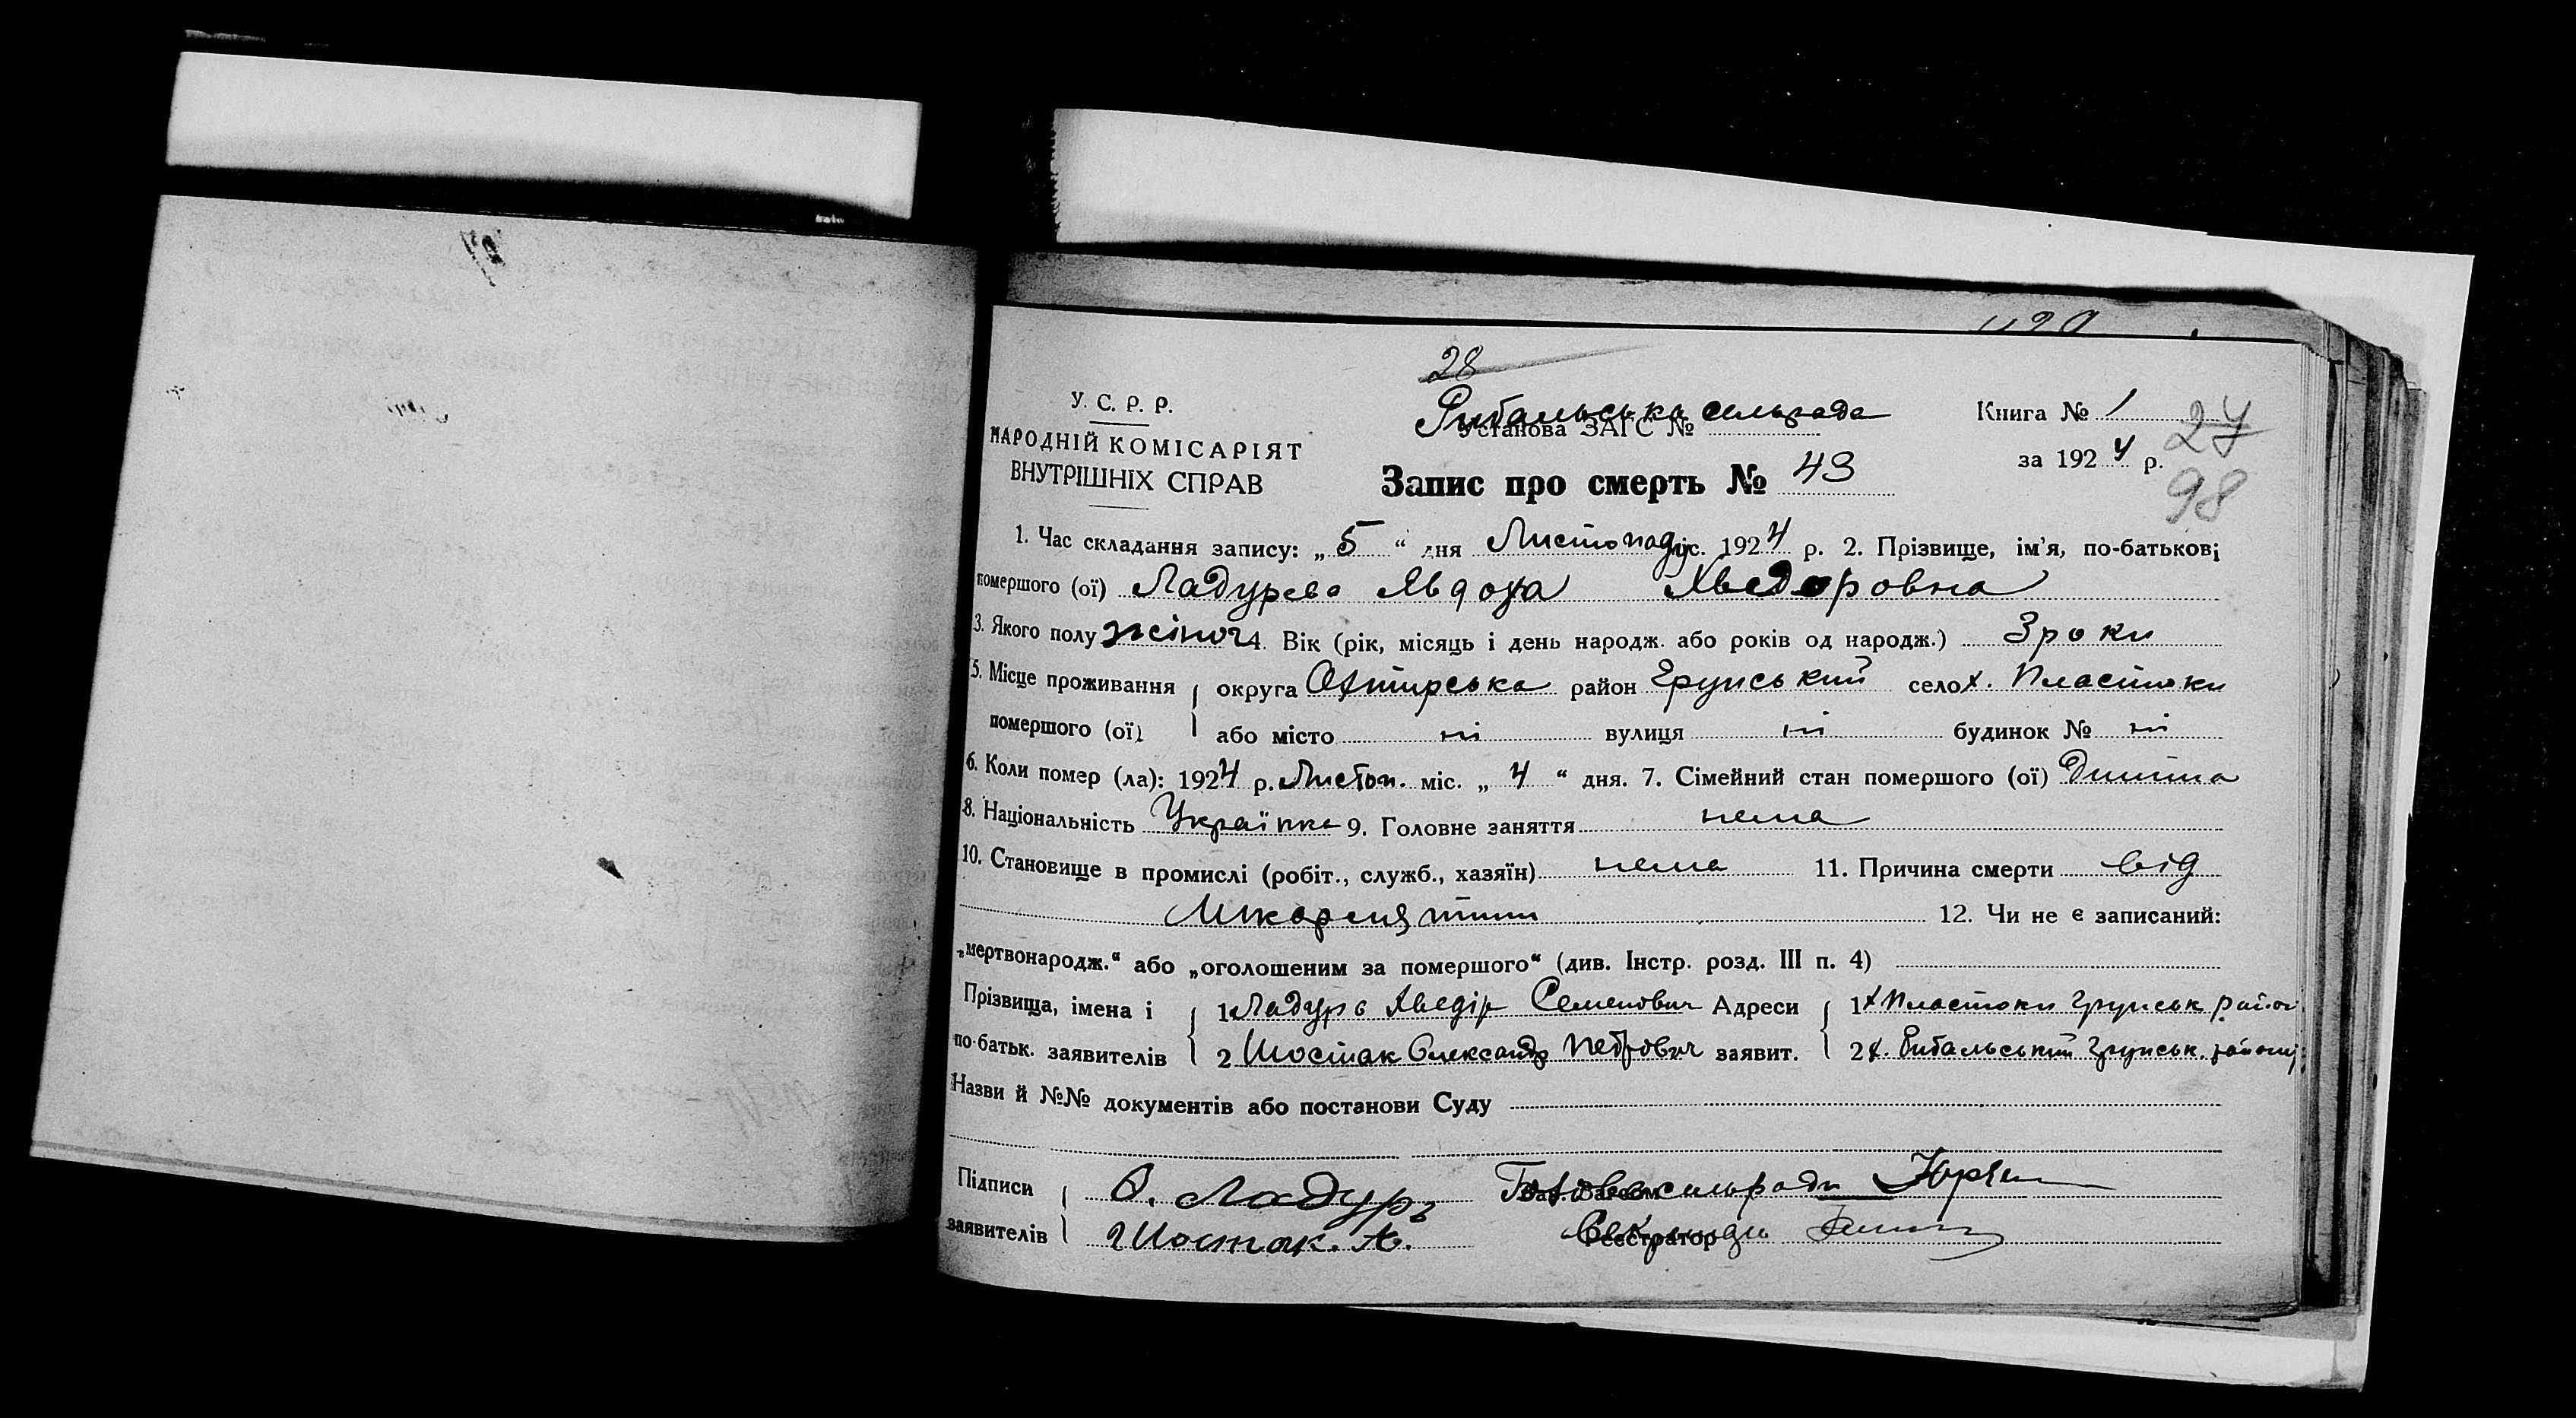 28
У. С. Р. Р.
НАРОДНІЙ КОМІСАРІЯТ
ВНУТРІШНІХ СПРАВ
Рибальська сельрада
Установа ЗАГС №
Книга № 1
27
за 1924 р.
98
Запис про смерть № 43
1. Час складання запису: „ 5 “ дня Листопад міс. 1924 р. 2. Прізвище, ім’я, по-батькові
помершого (ої) Ладурева Явдоха Хведоровна
3. Якого полу жіноч 4. Вік (рік, місяць і день народж. або років од народж.) 3 роки
5. Місце проживання помершого (ої) округа Охтирська район Грунський село х. Пластюки
або місто ні вулиця ні будинок № ні
6. Коли помер (ла): 1924 р. Листоп. міс. „ 4 “ дня. 7. Сімейний стан помершого (ої) Дитина
8. Національність Українка 9. Головне заняття нема
10. Становище в промислі (робіт., служб., хазяїн) нема 11. Причина смерти від
Шкарлятини 12. Чи не є записаний:
„мертвонародж.“ або „оголошеним за помершого“ (див. Інстр. розд. III п. 4)
Прізвища, імена і по-батьк. заявителів
1 Ладура Хведір Семенович Адреси 1 х Пластюки Грунськ район
2 Шостак Олександр Петрович заявит. 2 х. Рибальський Грунськ. району
Назви й №№ документів або постанови Суду
Підписи заявителів
Ладур
Голова сильради
Шостак. А.
Реєстратор